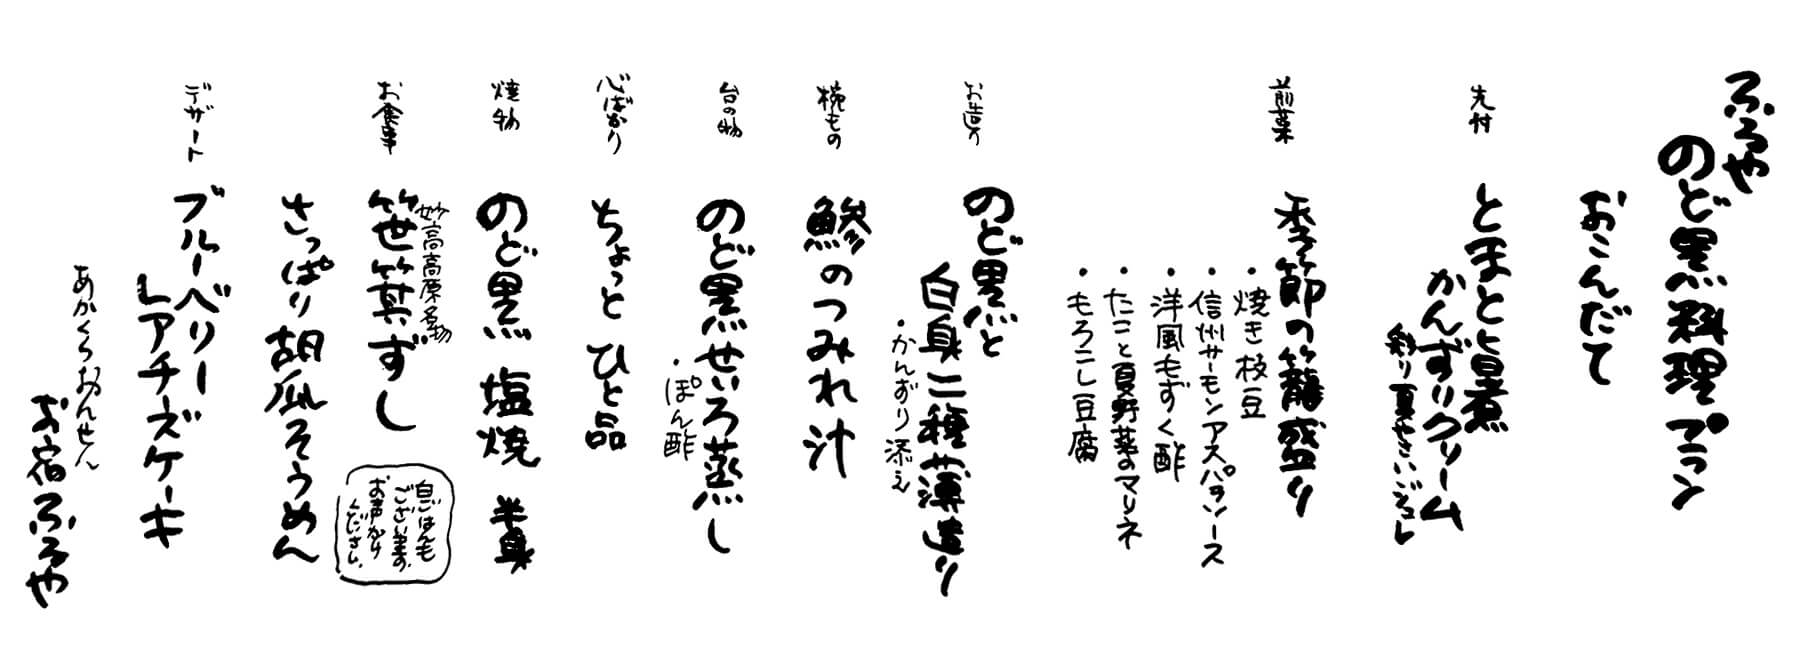 ふるや
のど黒料理プラン
おこんだて
先付
とまと旨煮
かんずりクリーム
彩り夏やさいジュレ
前菜
季節の籠盛り
・焼き枝豆
・信州サーモンアスパラソース
・洋風もずく酢
・たこと夏野菜のマリネ
・もろこし豆腐
お造り
のど黒と
白身二種薄造り
・かんずり添え
椀もの
鯵のつみれ汁
台の物
のど黒せいろ蒸し
・ぽん酢
心ばかり
ちょっとひと品
焼物
のど黒 塩焼 半身
お食事
妙高高原名物
笹箕ずし
白ごはんも
ございますの
お声かけ
ください。
さっぱり胡瓜そうめん
デザート
ブルーベリー
レアチーズケーキ
あかくらおんせん
お宿ふるや